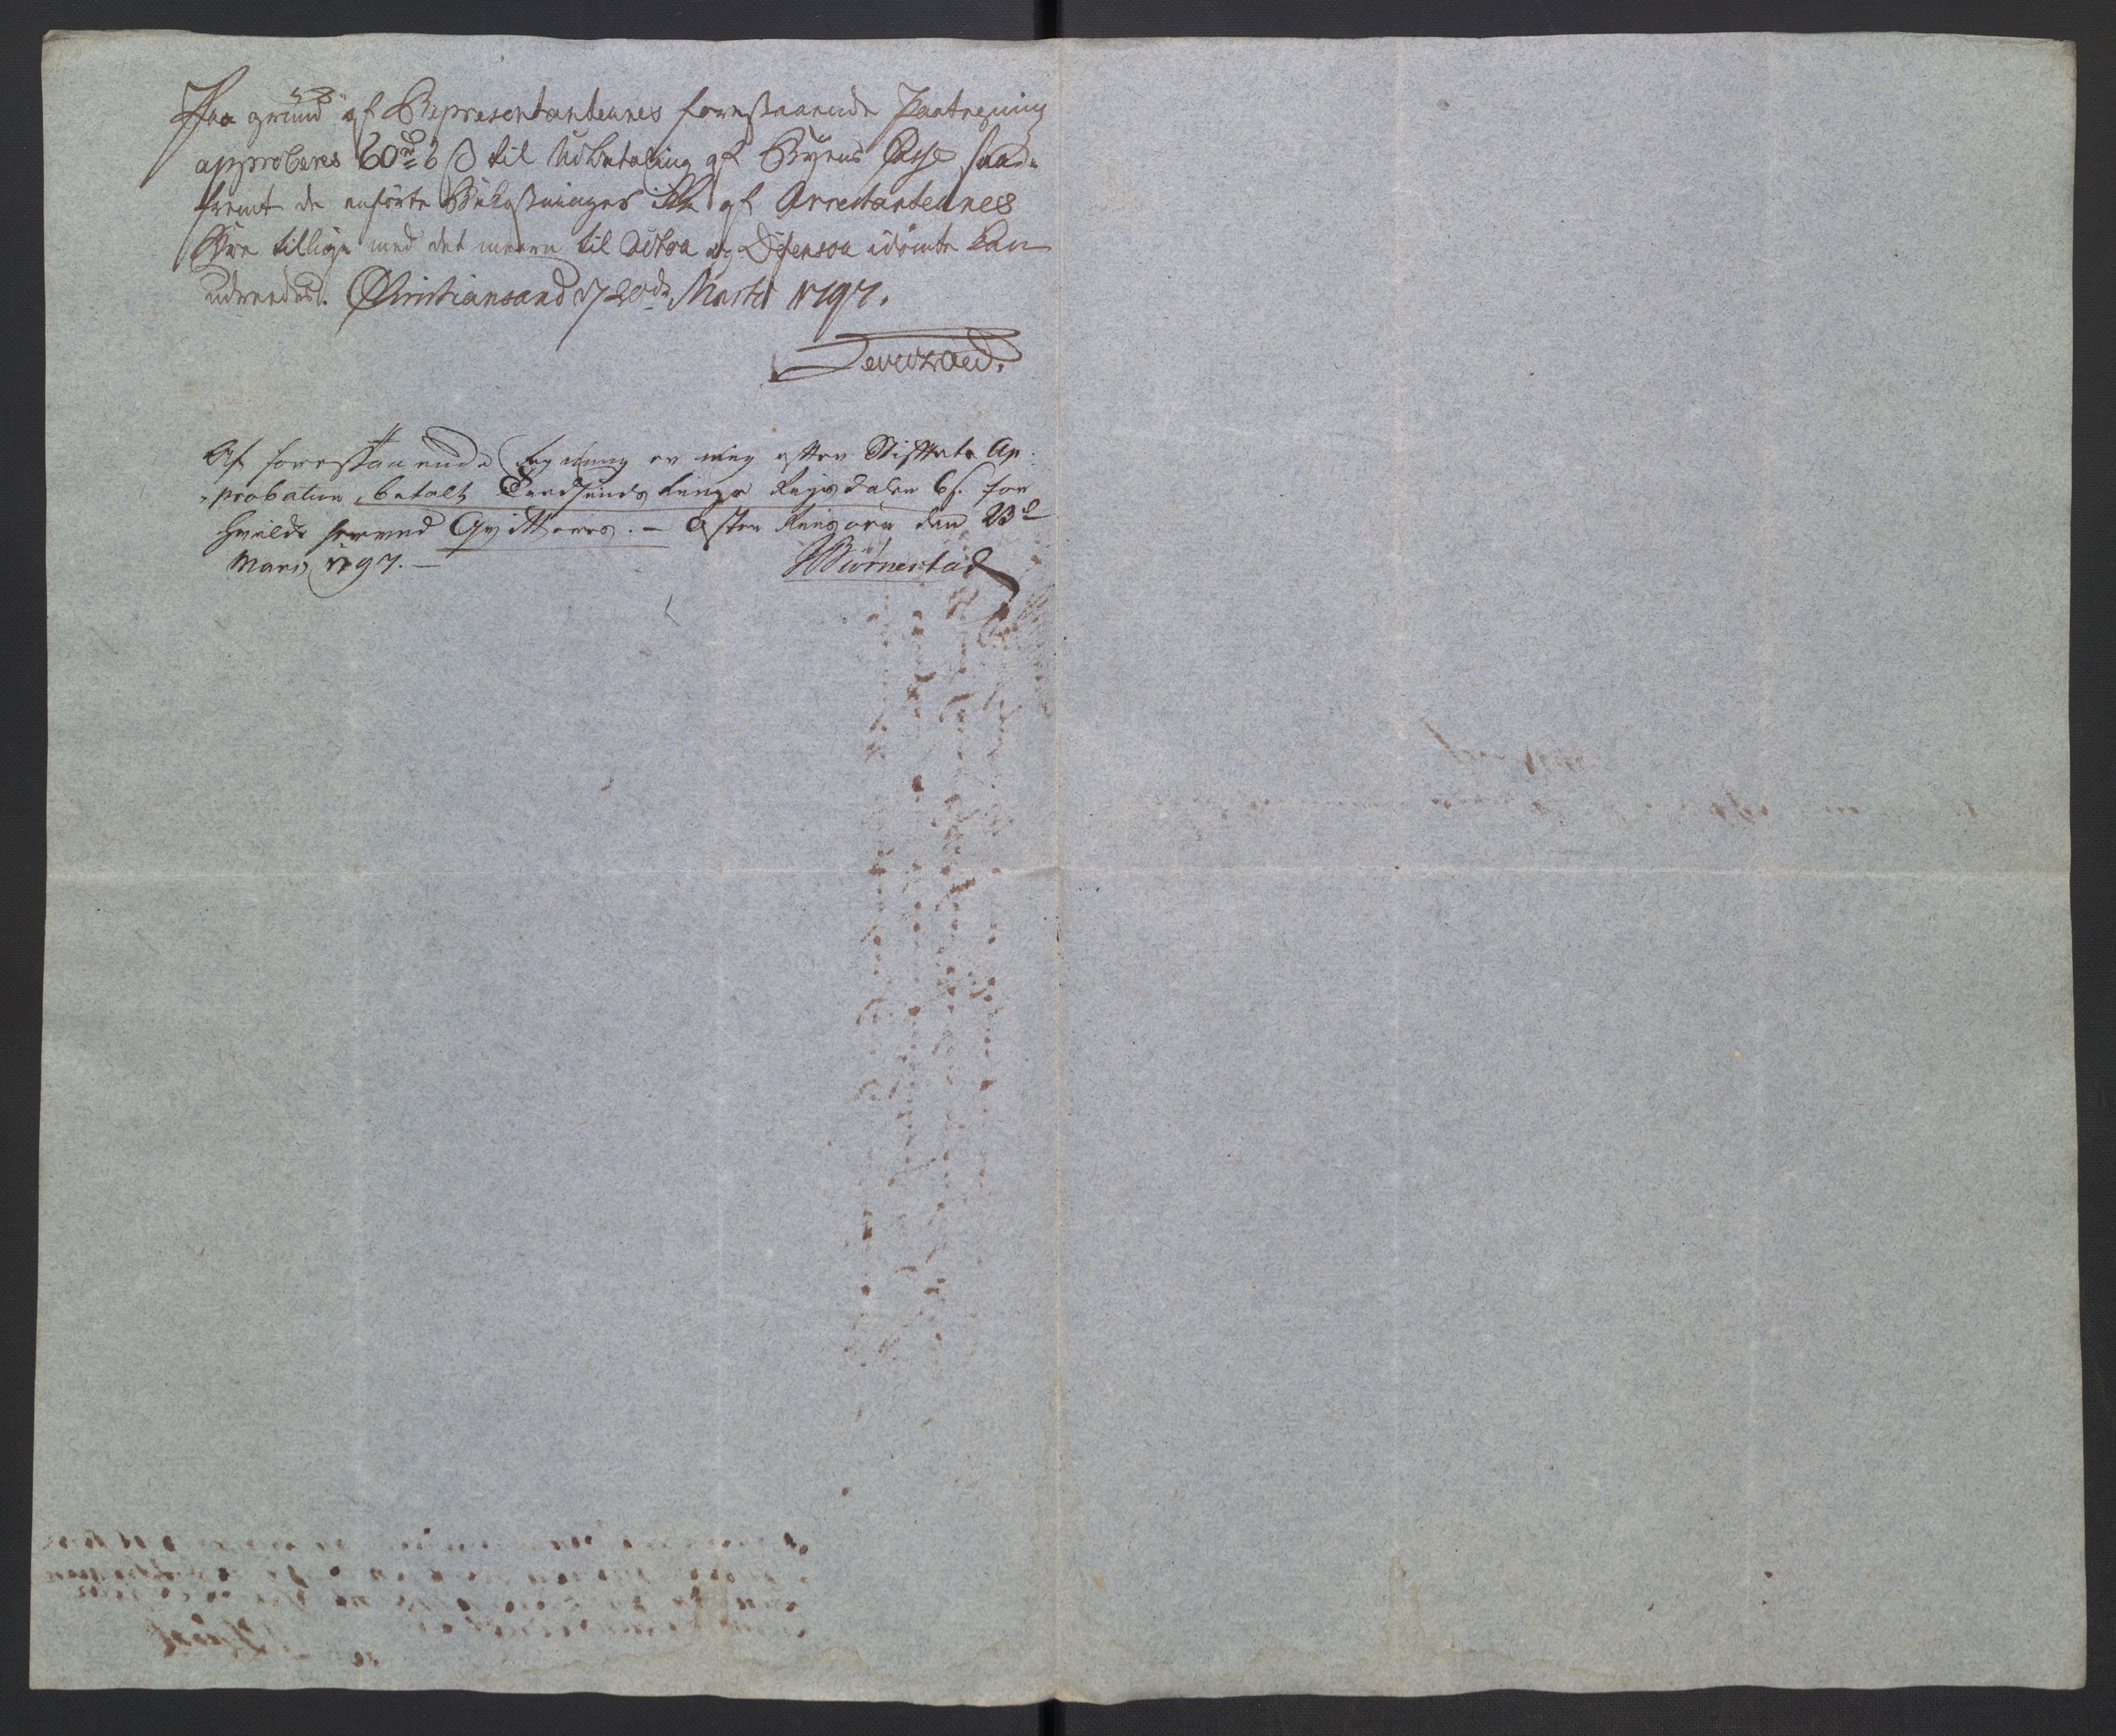 Paa grund af Representanternes forestaaende Paategning
approberes 60 rd 6 s til Udbetaling af Byens Casse saa-
fremt de anførte Bekostninger ikke af Arrestanternes
Boe tillige med det meere til Actor og Defensor idømte kan
udreedes. Christiansand d 20de Martii 1797.
Af forestaaende Regning er mig efter Stiftets Ap-
probation betalt Tredsindstyve Rigsdaler 6 s. for
hvilke herved Qvitteres. - Øster Riisøer den 23d
Marts 1797. -
Biørnestad